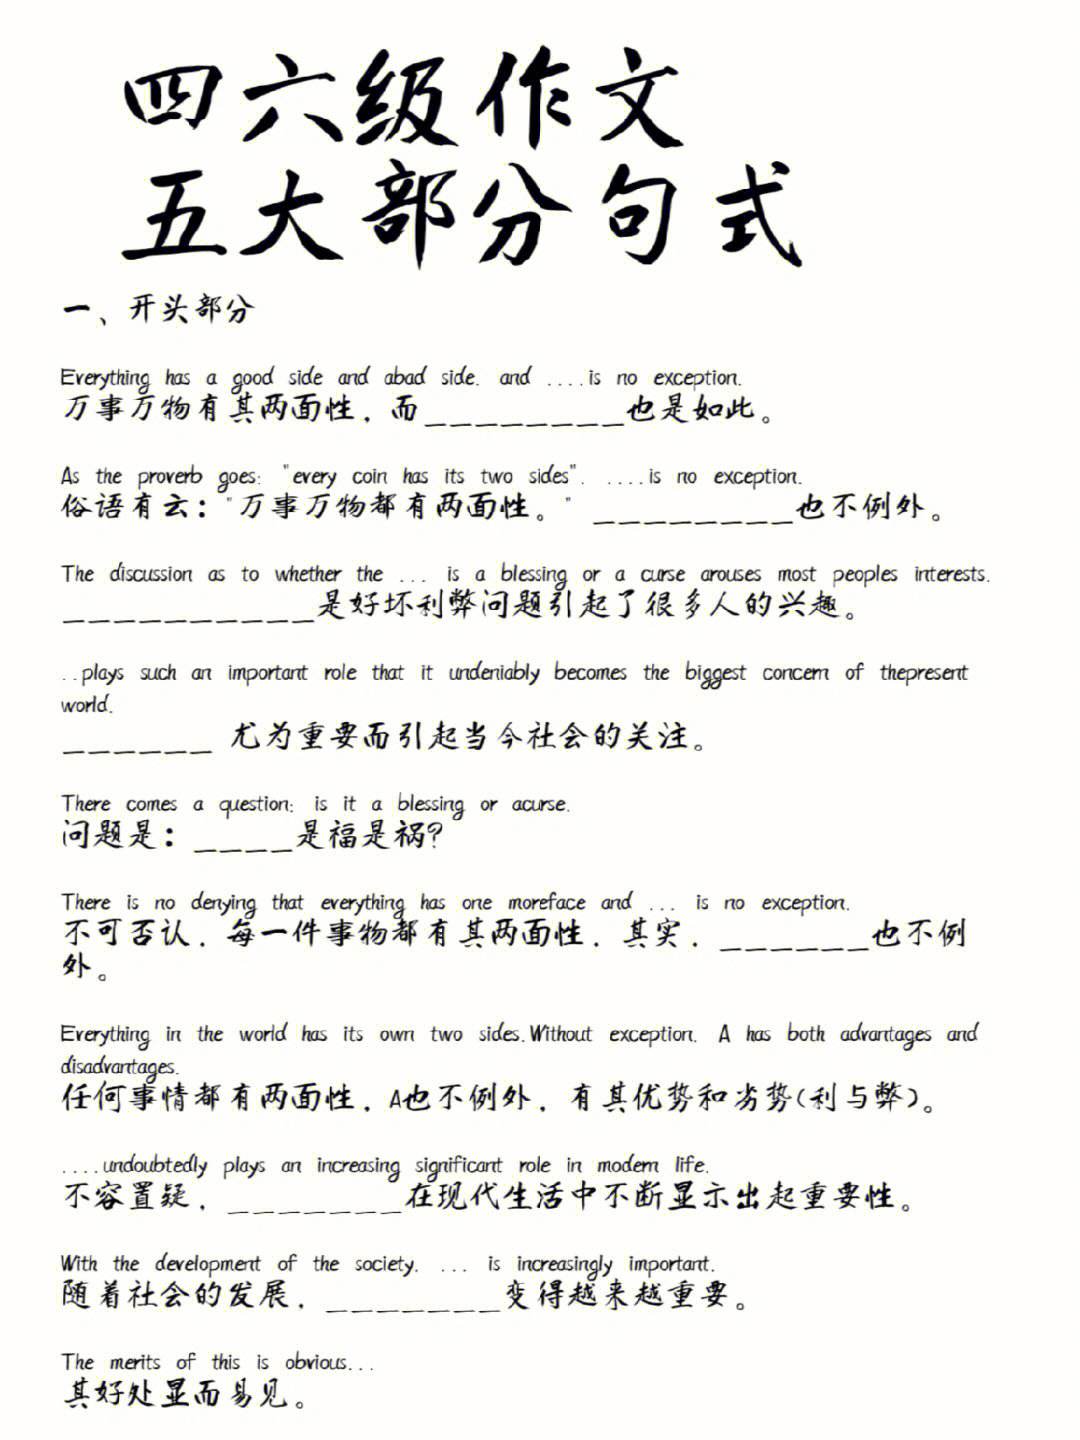 四六级作文
五大部分句式
一、开头部分
Everything has a good side and abad side. and ....is no exception.
万事万物有其两面性，而________也是如此。
As the proverb goes: "every coin has its two sides". ....is no exception.
俗语有云："万事万物都有两面性。" ________也不例外。
The discussion as to whether the ... is a blessing or a curse arouses most peoples interests.
__________是好坏利弊问题引起了很多人的兴趣。
..plays such an important role that it undeniably becomes the biggest concern of thepresent
world.
______ 尤为重要而引起当今社会的关注。
There comes a question: is it a blessing or acurse.
问题是：____是福是祸?
There is no denying that everything has one moreface and ... is no exception.
不可否认，每一件事物都有其两面性，其实，______也不例
外。
Everything in the world has its own two sides.Without exception. A has both advantages and
disadvantages.
任何事情都有两面性，A也不例外，有其优势和劣势(利与弊)。
....undoubtedly plays an increasing significant role in modern life.
不容置疑，_______在现代生活中不断显示出起重要性。
With the development of the society. ... is increasingly important.
随着社会的发展，_______变得越来越重要。
The merits of this is obvious...
其好处显而易见。